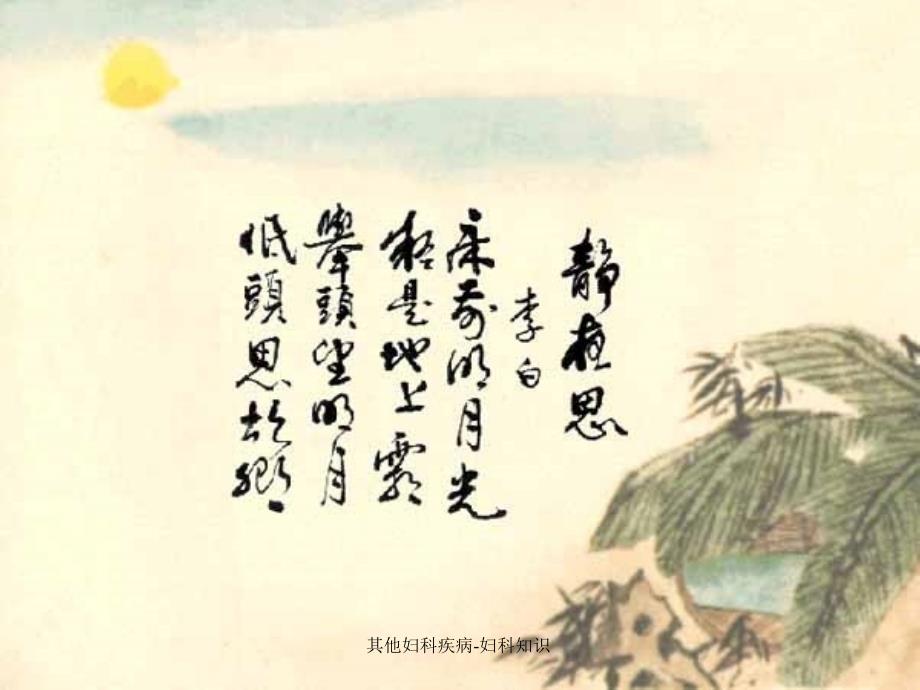 靜夜思
李白
床前明月光
疑是地上霜
舉頭望明月
低頭思故鄉
其他妇科疾病-妇科知识